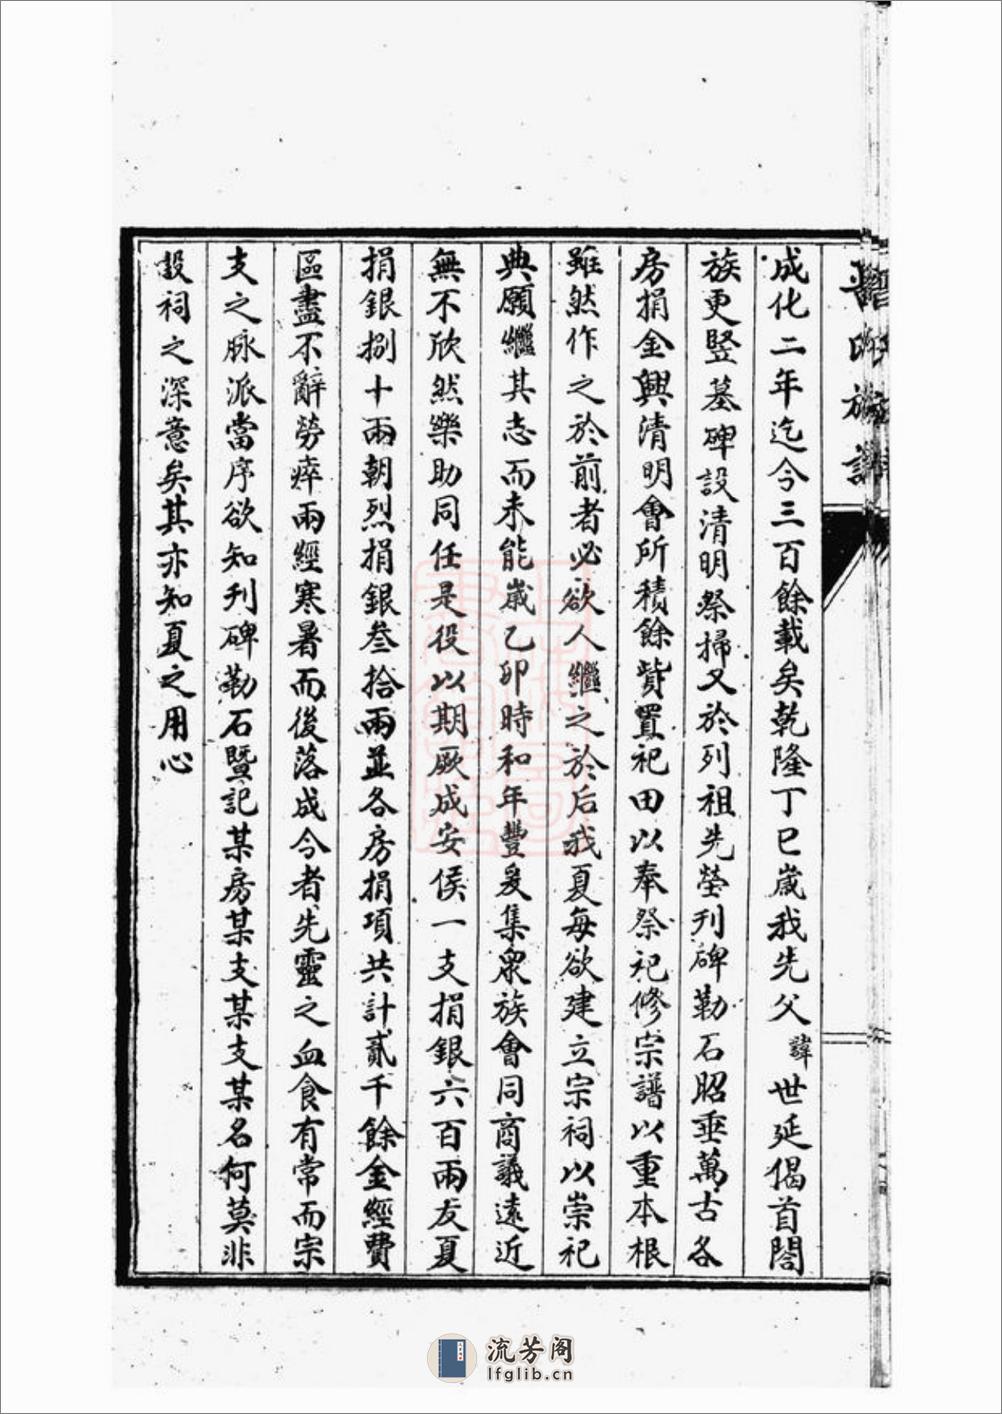 成化二年迄今三百餘載矣乾隆丁巳歲我先父諱世延偈首閤
族更竪墓碑設清明祭掃又於列祖先塋刋碑勒石昭垂萬古各
房捐金興清明會所積餘貲置祀田以奉祭祀修宗譜以重本根
雖然作之於前者必欲人繼之於后我夏每欲建立宗祠以崇祀
典願繼其志而未能歲乙卯時和年豐爰集衆族會同商議遠近
無不欣然樂助同任是役以期厥成安侯一支捐銀六百兩友夏
捐銀捌十兩朝烈捐銀叁拾兩並各房捐項共計貳千餘金經費
區盡不辭勞瘁兩經寒暑而後落成今者先靈之血食有常而宗
支之脉派當序欲知刋碑勒石暨記某房某支某支某名何莫非
設祠之深意矣其亦知夏之用心
流芳阁
lfglib.cn